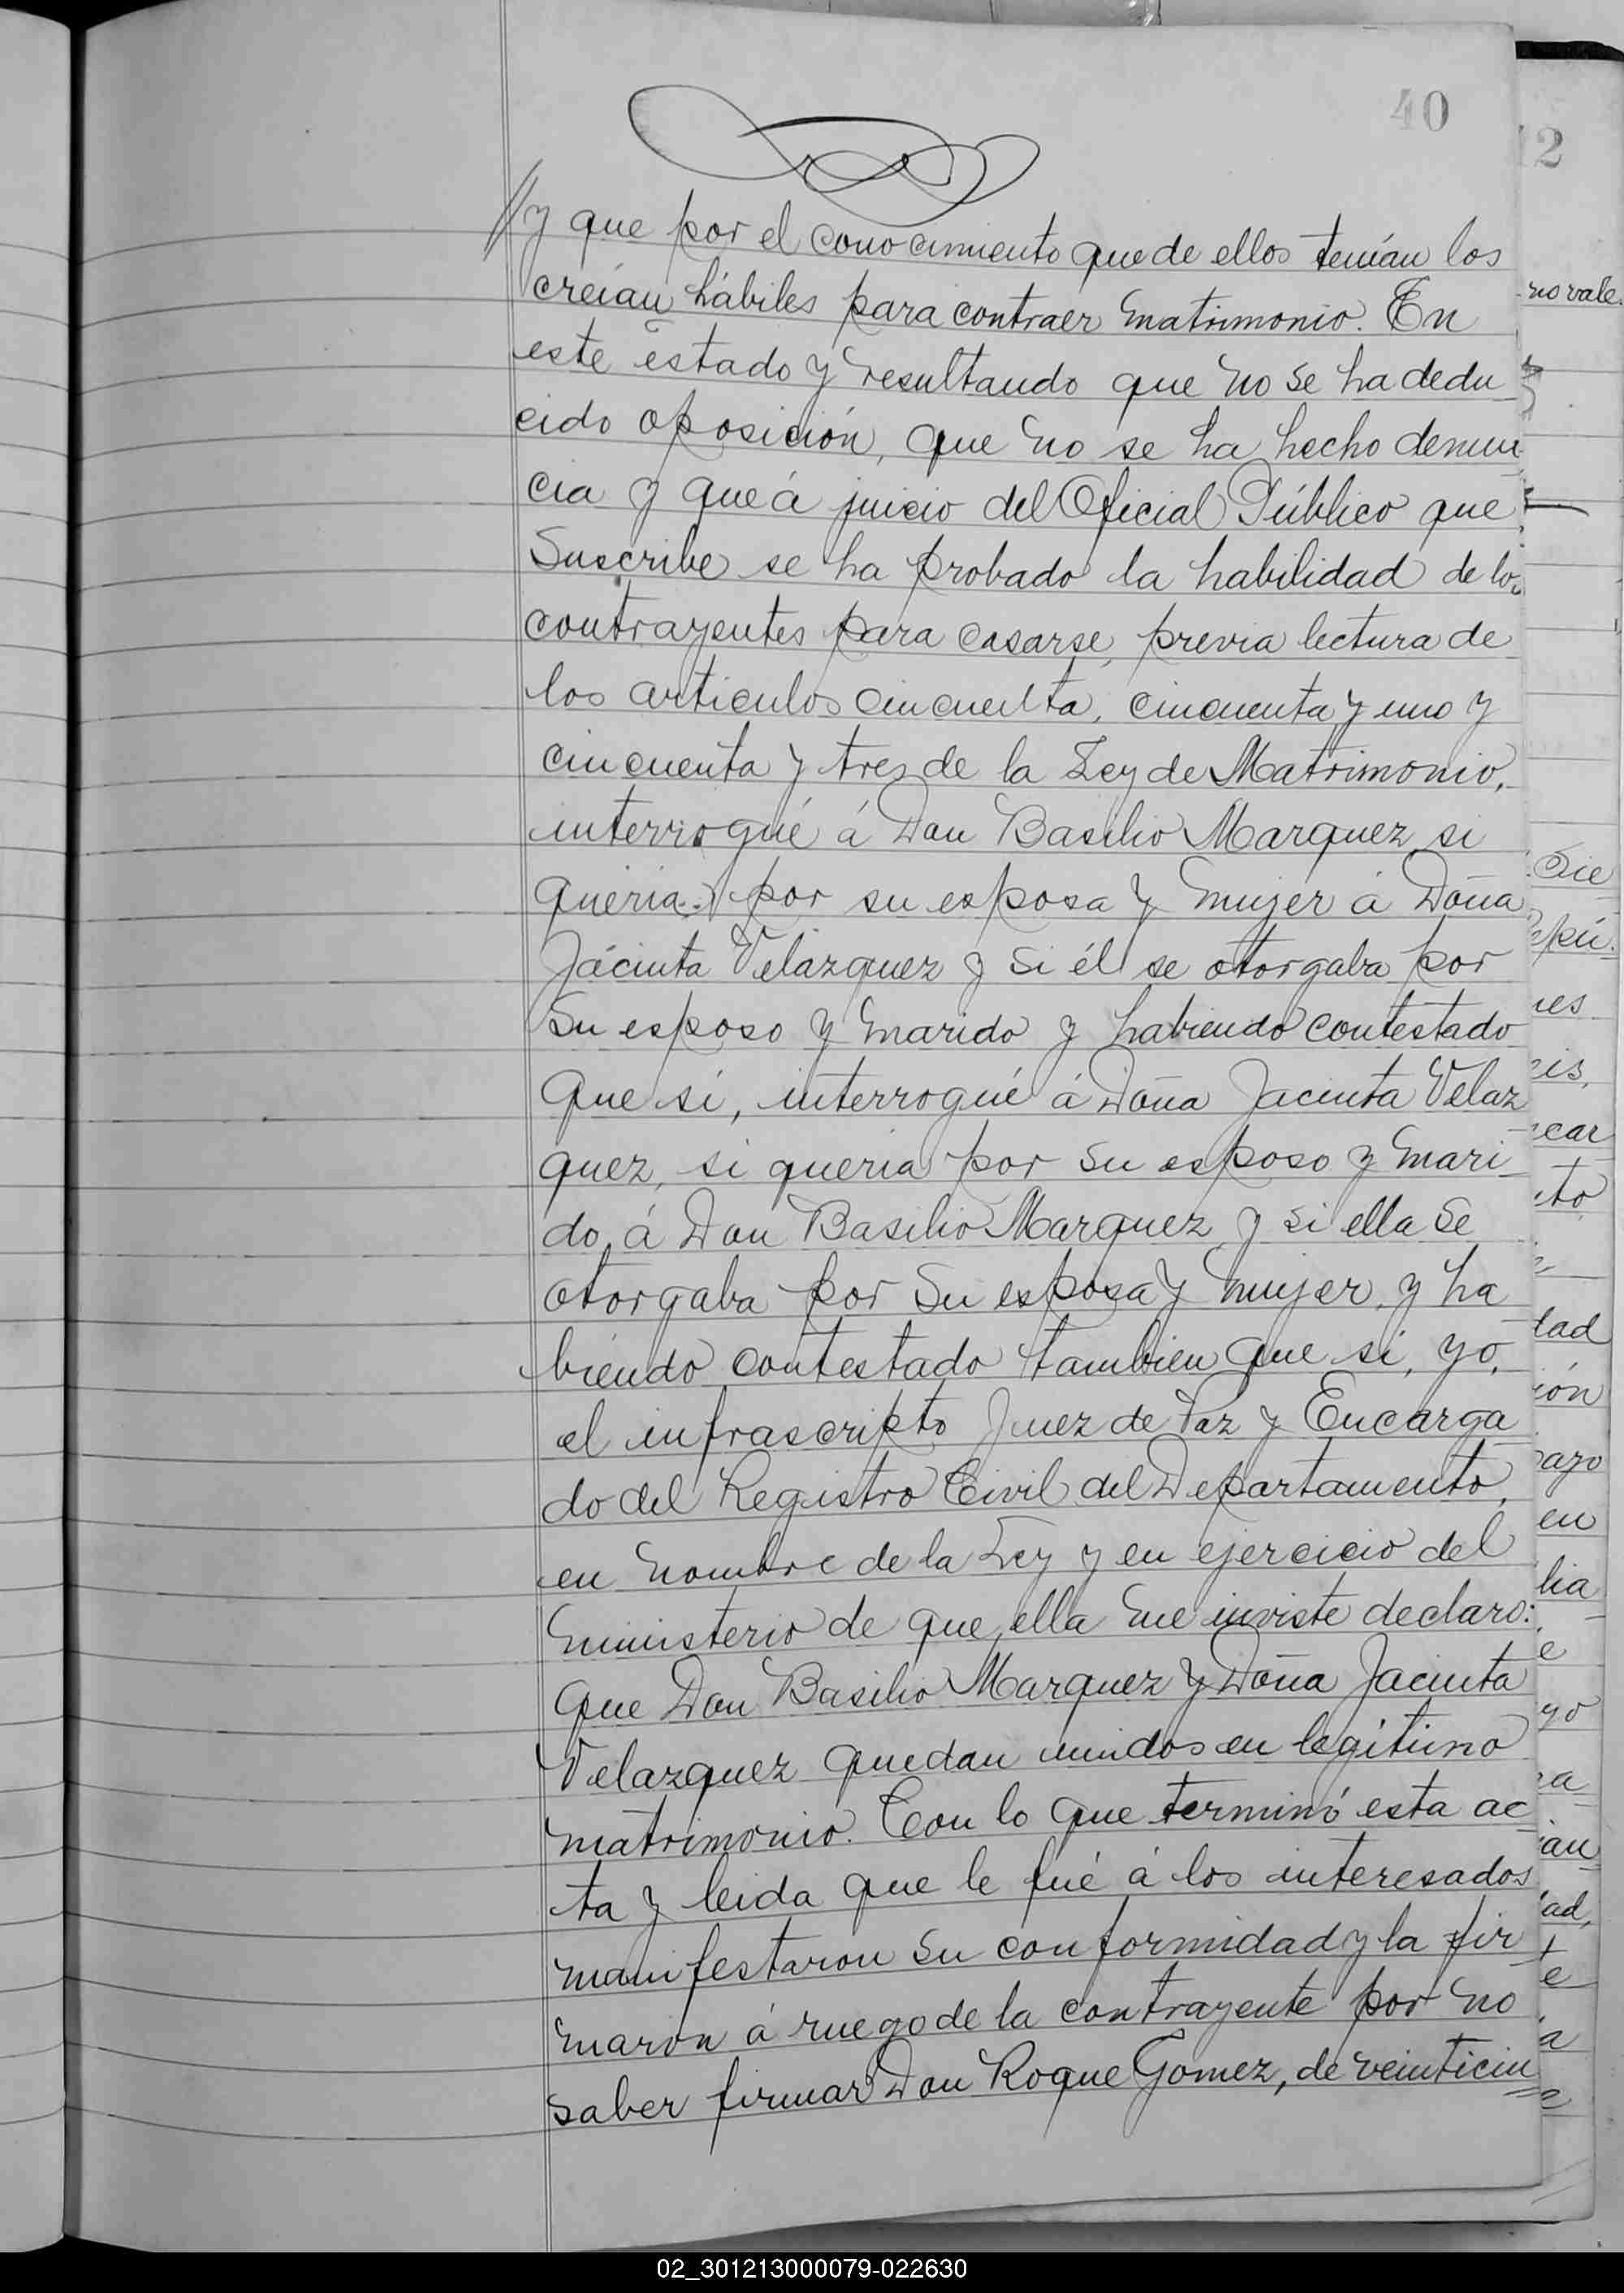 40
12
//y que por el conocimiento que de ellos tenían los
creían hábiles para contraer matrimonio. En
este estado y resultando que no se ha dedu
cido oposición, que no se ha hecho denun
cia y que á juicio del Oficial Público que
Suscribe se ha probado la habilidad de los
contrayentes para casarse, previa lectura de
los articulos cincuenta, cincuenta y uno y
cincuenta y tres de la Ley de Matrimonio,
interrogué á Don Basilio Marquez si
queria por su esposa y mujer á Doña
Jácinta Velázquez y si él se otorgaba por
su esposo y marido y habiendo contestado
que si, interrogué á Doña Jacinta Velaz
quez, si queria por su esposo y mari
do, á Don Basilio Marquez y si ella se
otorgaba por su esposa y mujer, y ha
biendo contestado tambien que si, yo,
el infrascripto Juez de Paz y Encarga
do del Registro Civil del Departamento,
en nombre de la Ley y en ejercicio del
ministerio de que ella me inviste declaro:
Que Don Basilio Marquez y Doña Jacinta
Velazquez quedan unidos en legítimo
matrimonio. Con lo que terminó esta ac
ta y leida que le fué á los interesados
manifestaron su conformidad y la fir
maron á ruego de la contrayente por no
saber firmar Don Roque Gomez, de veinticin
no vale.
02_301213000079-022630